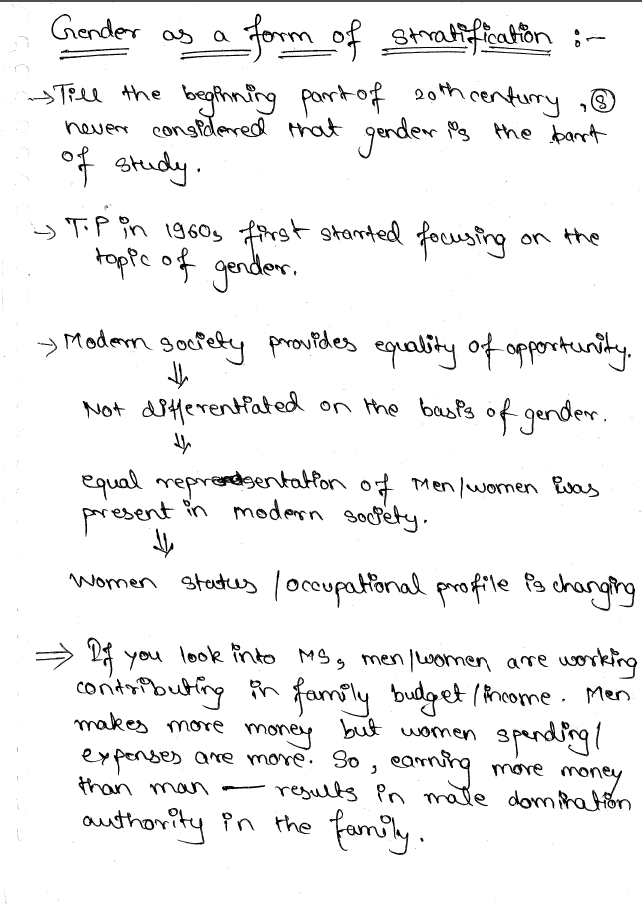 Gender as a form of stratification :-
→ Till the beginning part of 20th century, Ⓢ
never considered that gender is the part
of study.
→ T.P in 1960s first started focusing on the
topic of gender.
→ Modern society provides equality of opportunity.
⇓
Not differentiated on the basis of gender.
⇓
equal representation of Men/women was
present in modern society.
⇓
Women status / occupational profile is changing
⇒ If you look into MS, men/women are working
contributing in family budget/income. Men
makes more money but women spending/
expenses are more. So, earning more money
than man — results in male domination
authority in the family.